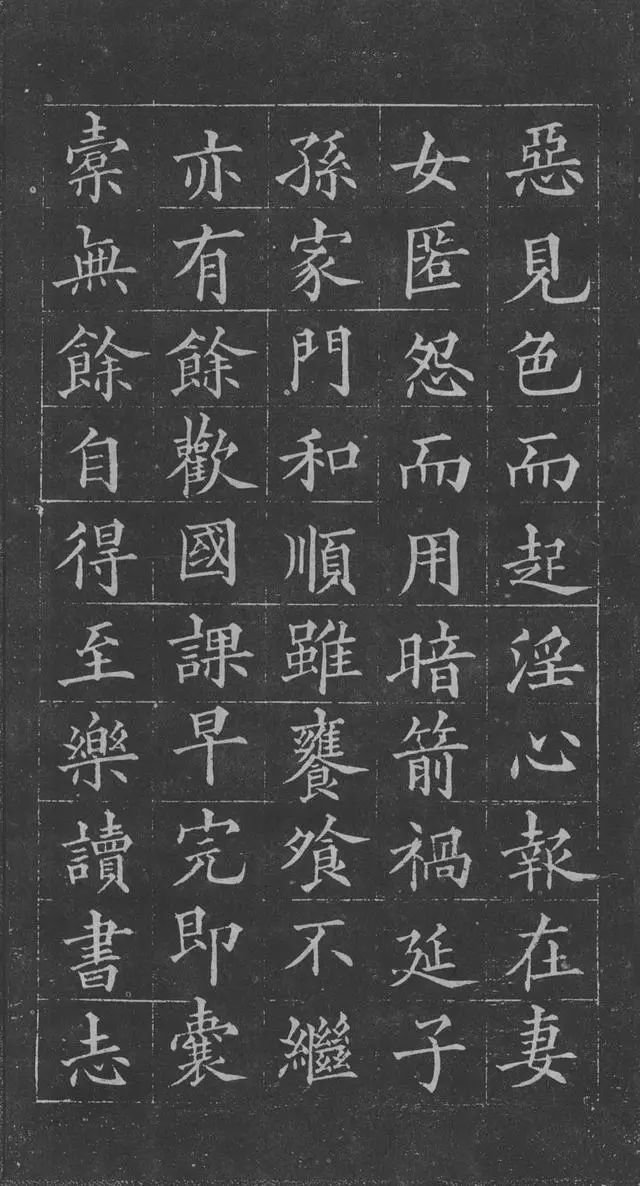 惡見色而起淫心報在妻
女匿怨而用暗箭禍延子
孫家門和順雖饔飧不繼
亦有餘歡國課早完即囊
橐無餘自得至樂讀書志